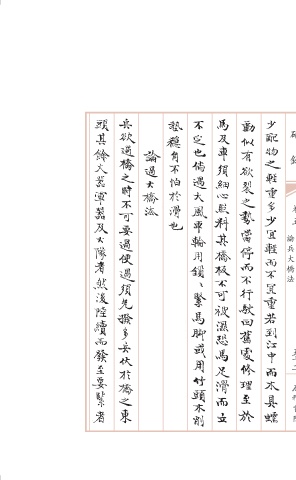 論兵大橋法
少配物之輕重多少宜輕而不宜重若到江中而木具蠕
動似有欲裂之勢當停而不行駛回舊處修理至於
馬及車須細心照料其橋板不可被濕恐馬足滑而立
不定也倘遇大風車輪用鐵繫馬脚或用竹頭木削
墊穩自不怕於滑也
論過大橋法
兵欲過橋之時不可要過便過須先撥多兵伏於橋之東
頭其餘火器軍器及大隊者然後陸續而發至要緊者